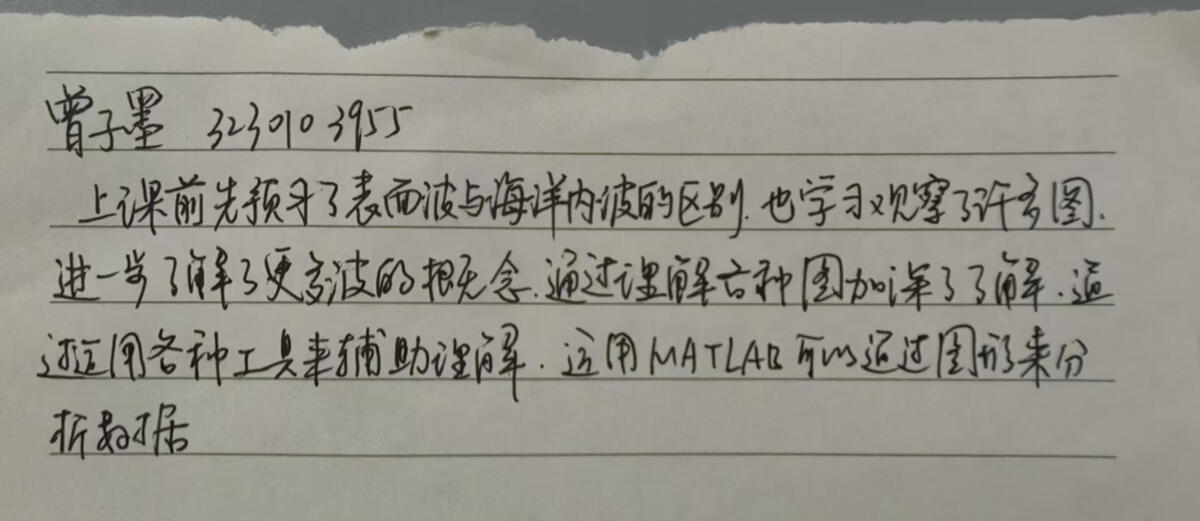 曾子墨 3230103955
上课前先预习了表面波与海洋内波的区别.也学习观察了许多图.
进一步了解了更多波的概念.通过理解各种图加深了了解.通
过运用各种工具来辅助理解.运用MATLAB可以通过图形来分
析数据